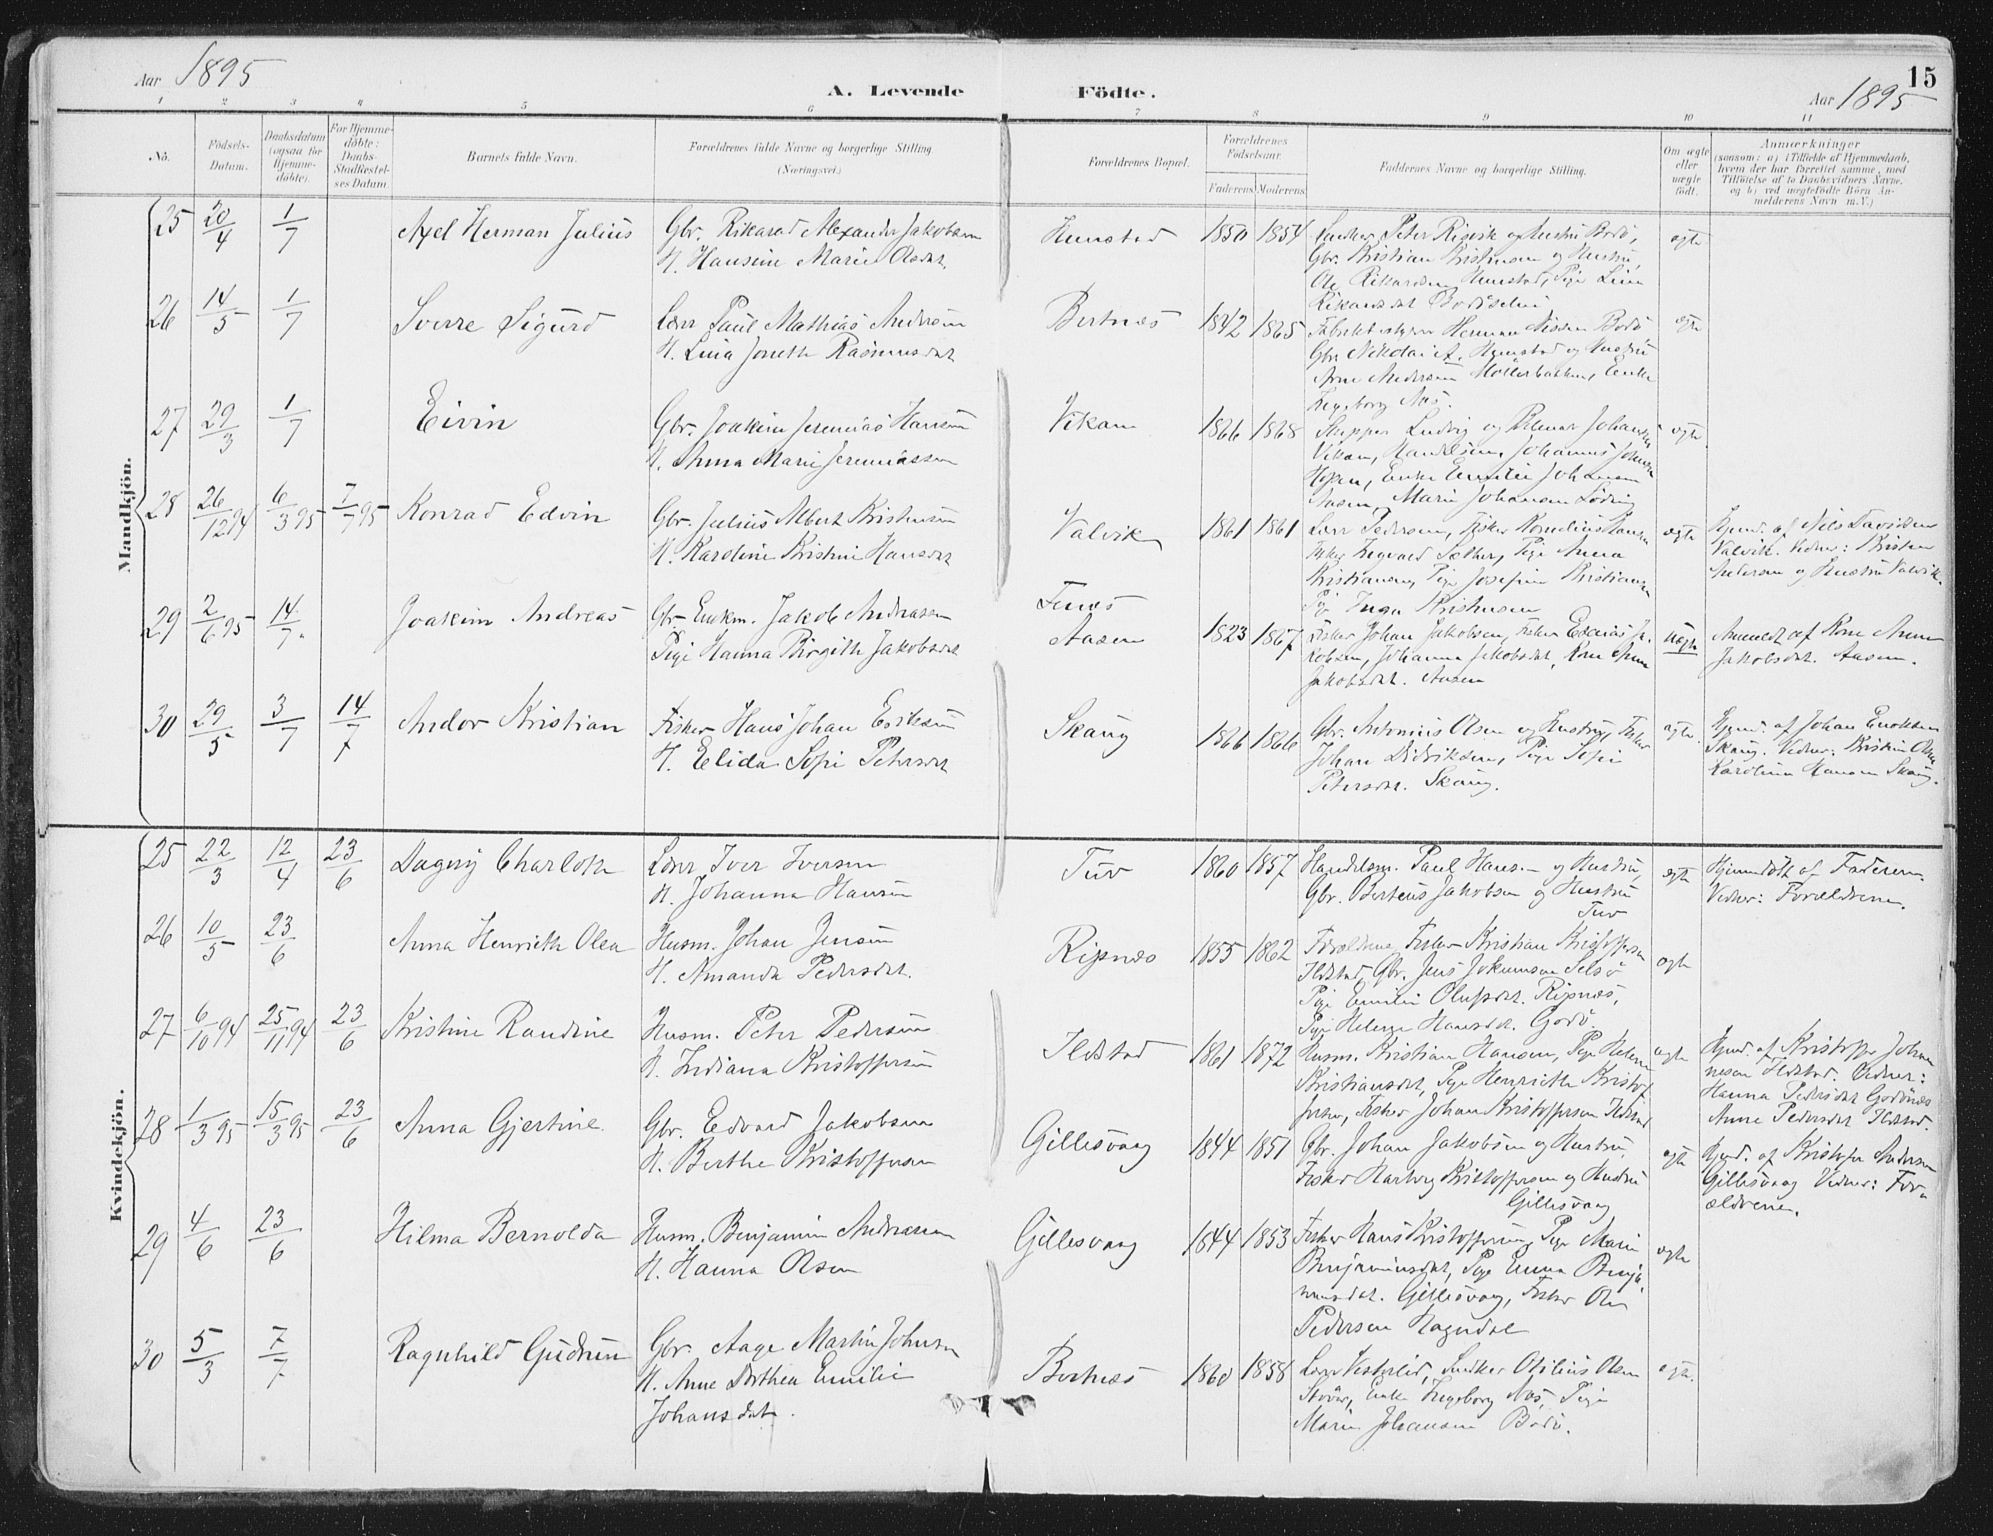 Aar 1895
A. Levende Fødte.
15
Aar 1895
1 2 3 4 5 6 7 8 9 10 11
No.
Fødsels-Datum.
Daabsdatum (ogsaa for Hjemme-døbte).
For Hjemme-døbte: Daabs-Stadfæstel-ses Datum.
Barnets fulde Navn.
Forældrenes fulde Navne og borgerlige Stilling. (Næringsvei.)
Forældrenes Bopæl.
Forældrenes Fødselsaar.
Faderens Moderens
Faddernes Navne og borgerlige Stilling.
Om ægte eller uægte født.
Anmærkninger
(saasom: a) i Tilfælde af Hjemmedaab, hvem der har forrettet samme, med Tilføielse af to Daabsvidners Navne, og b) ved uægtefødte Børn An-melderens Navn m. V.)
Mandkjön.
25 20/4 1/7 Axel Herman Julius
Gbr. Rikard Alexander Jakobsen
H. Hansine Marie Olsdt.
Hunstad 1850 1854
Peter Risvik og Hustru Bodø,
Gbr. Kristian Kristensen og Hustru,
Ole Rikardsen Hunstad, Pige Lina
Rikardsdt.
ægte
26 14/5 1/7 Sverre Sigurd
Lærer Paul Mathias Andersen
H. Lina Jonette Rasmusdt
Bertnæs 1842 1865
Herman Nissen Bodø
Gbr. Nikolai A. Hunstad og Hustru
Arne Andersen Møllerbakken, Enke
Ingeborg Aas.
ægte
27 29/3 1/7 Eivin
Gbr. Joakim Jeremias Hansen
H. Anna Marie Jeremiassen
Vikan 1866 1868
Skipper Ludvig og Johansen
Vikan, Handelsm. Johannes
Enke Emilie Johansen
Aasen, Marie Johansen Løding
ægte
28 26/12 94 6/3 95 7/7 95 Konrad Edvin
Gbr. Julius Albert Kristensen
H. Karoline Kristine Hansdt
Valvik 1861 1861
Lærer Pedersen, Fisker Kornelius Hansen
Fisker Ingvald Sæther, Pige Anna
Kristiansen, Pige Josefine Kristiansen
Pige Inga Kristensen
ægte
Hjemd. af Nils Davidsen
Valvik. Vidner: Kristen
Petersen og Hustru Valvik.
29 2/6 95 14/7. Joakim Andreas
Gbr. Enkm. Jakob Andreassen
Pige Hanna Birgitte Jakobsdt
Fenes
Aasen 1823 1867
Fisker Johan Jakobsen, Fisker Esaias Ja-
kobsen, Johanna Jakobsdt, Kone Anne
Jakobsdt. Aasen
Uægte
Anmeldt af Kone Anne
Jakobsdt. Aasen.
30 29/5 3/7 14/7 Andor Kristian
Fisker Hans Johan Eriksen
H. Elida Sofie Petersdt
Skaug 1866 1866
Gbr. Antonius Olsen og Hustru, Fisker
Johan Didriksen, Pige Sofie
Petersdt. Skaug.
ægte
Hjemd. af Johan Enoksen
Skaug. Vidner: Kristine Olsen
Karoline Hansen Skaug.
Kvindekjön.
25 22/3 12/4 23/6 Dagny Charlotte
Lærer Iver Iversen
H. Johanna Hansen
Tuv 1860 1857
Handelsm. Paul Hansen og Hustru,
Gbr. Berteus Jakobsen og Hustru
Tuv
ægte
Hjemmedøbt af Faderen.
Vidner: Forældrene.
26 10/5 23/6 Anna Henriette Olea
Husm. Johan Jensen
H. Amanda Pedersdt.
Ripnæs 1855 1862
Forældrene, Fisker Kristian Kristoffersen
Ildstad, Gbr. Jens Jokumsen Selsø
Pige Emilie Olufsdt. Ripnæs,
Pige Helene Hansdt. Godø.
ægte
27 6/10 94 25/11 94 23/6 Kristine Raudine
Husm. Peter Pedersen
H. Indiana Kristoffersen
Ildstad 1861 1872
Husm. Kristian Hansen, Pige Helene
Kristiansdt, Pige Henriette Kristof-
fersen, Fisker Johan Kristoffersen Ildstad
ægte
Hjemd. af Kristoffer Johan-
nesen Ildstad. Vidner:
Hanna Pedersdt Godønæs
Anne Pedersdt Ildstad.
28 1/3 95 15/3 95 23/6 Anna Gjertine
Gbr. Edvard Jakobsen
H. Berthe Kristoffersen
Gillesvaag 1844 1851
Gbr. Johan Jakobsen og Hustru
Fisker Hartvig Kristoffersen og Hustru
Gillesvaag
ægte
Hjemd. af Kristofer Andersen
Gillesvaag Vidner: For-
ældrene.
29 4/6 23/6 Hilma Bernolda
Husm. Benjamin Andreassen
H. Hanna Olsen
Gillesvaag 1844 1853
Fisker Hans Kristoffersen, Pige Marie
Benjaminsdt, Pige Emma Benja-
minsdt. Gillesvaag, Fisker Ole
Pedersen Hagndal
ægte
30 5/3 7/7 Ragnhild Gudrun
Gbr. Aage Martin Johnsen
H. Anne Dorthea Emilie
Johansdt.
Bertnæs 1860 1858
Lærer Vesterlid, Snedker Otilius Olsen
Støver, Enke Ingeborg Aas, Pige
Marie Johansen Bodø.
ægte.